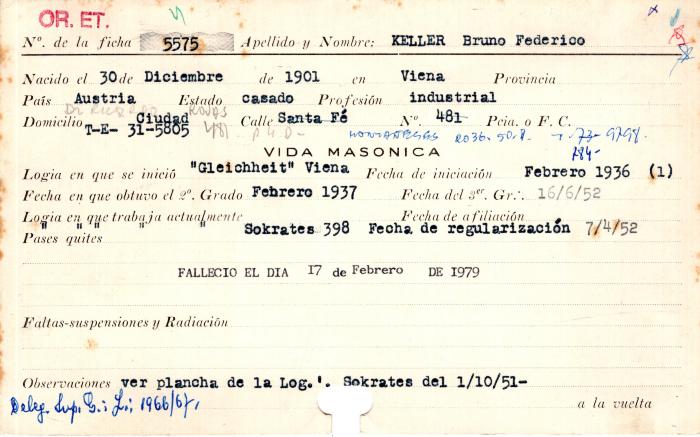 OR. ET.
Nº. de la ficha 5575 Apellido y Nombre: KELLER Bruno Federico
Nacido el 30 de Diciembre de 1901 en Viena Provincia
País Austria Estado casado Profesión industrial
Domicilio Ciudad Calle Santa Fé Nº. 481 Pcia. o F. C.
T-E- 31-5805
VIDA MASONICA
784-
Logia en que se inició "Gleichheit" Viena Fecha de iniciación Febrero 1936 (1)
Fecha en que obtuvo el 2º. Grado Febrero 1937 Fecha del 3er. Gr∴ 16/6/52
Logia en que trabaja actualmente Fecha de afiliación
" " " " Sokrates 398 Fecha de regularización 7/4/52
Pases quites
FALLECIO EL DIA 17 de Febrero DE 1979
Faltas-suspensiones y Radiación
Observaciones ver plancha de la Log.'. Sokrates del 1/10/51-
Deleg. Sup. G∴ L∴ 1966/67,
a la vuelta